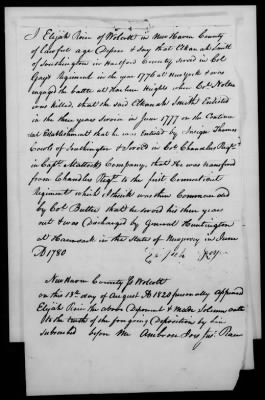 I Elijah Rice of Wolcott in New Haven County
of lawful age Depose & say that Elkanah Smith
of Southington in Hartford County served in Col
Gays Regiment in the year 1776 at New york & was
engaged the battle at Harlem Heights when Col Nolton
was killed, that he said Elkanah Smith Enlisted
in the three years service in June 1777 on the Continen
tal Establishment that he was Enlisted by Insign Thomas
Cowls of Southington & Served in Col Chandlers Regt
in Capt Mattocks Company, that he was transfered
from Chandlers Regt to the first Connecticut
Regiment which I think was then Commanded
by Col Butler that he served his three years
out & was Discharged by General Huntington
at in the state of in June
AD 1780
New Haven County Js Wolcott
on this 13th day of August AD 1820 personally appeared
Elijah Rice the above Deponent & made Solemn oath
to the truth of the foregoing Deposition by him
subscribed before Me Ambros Ives Jus. Peace